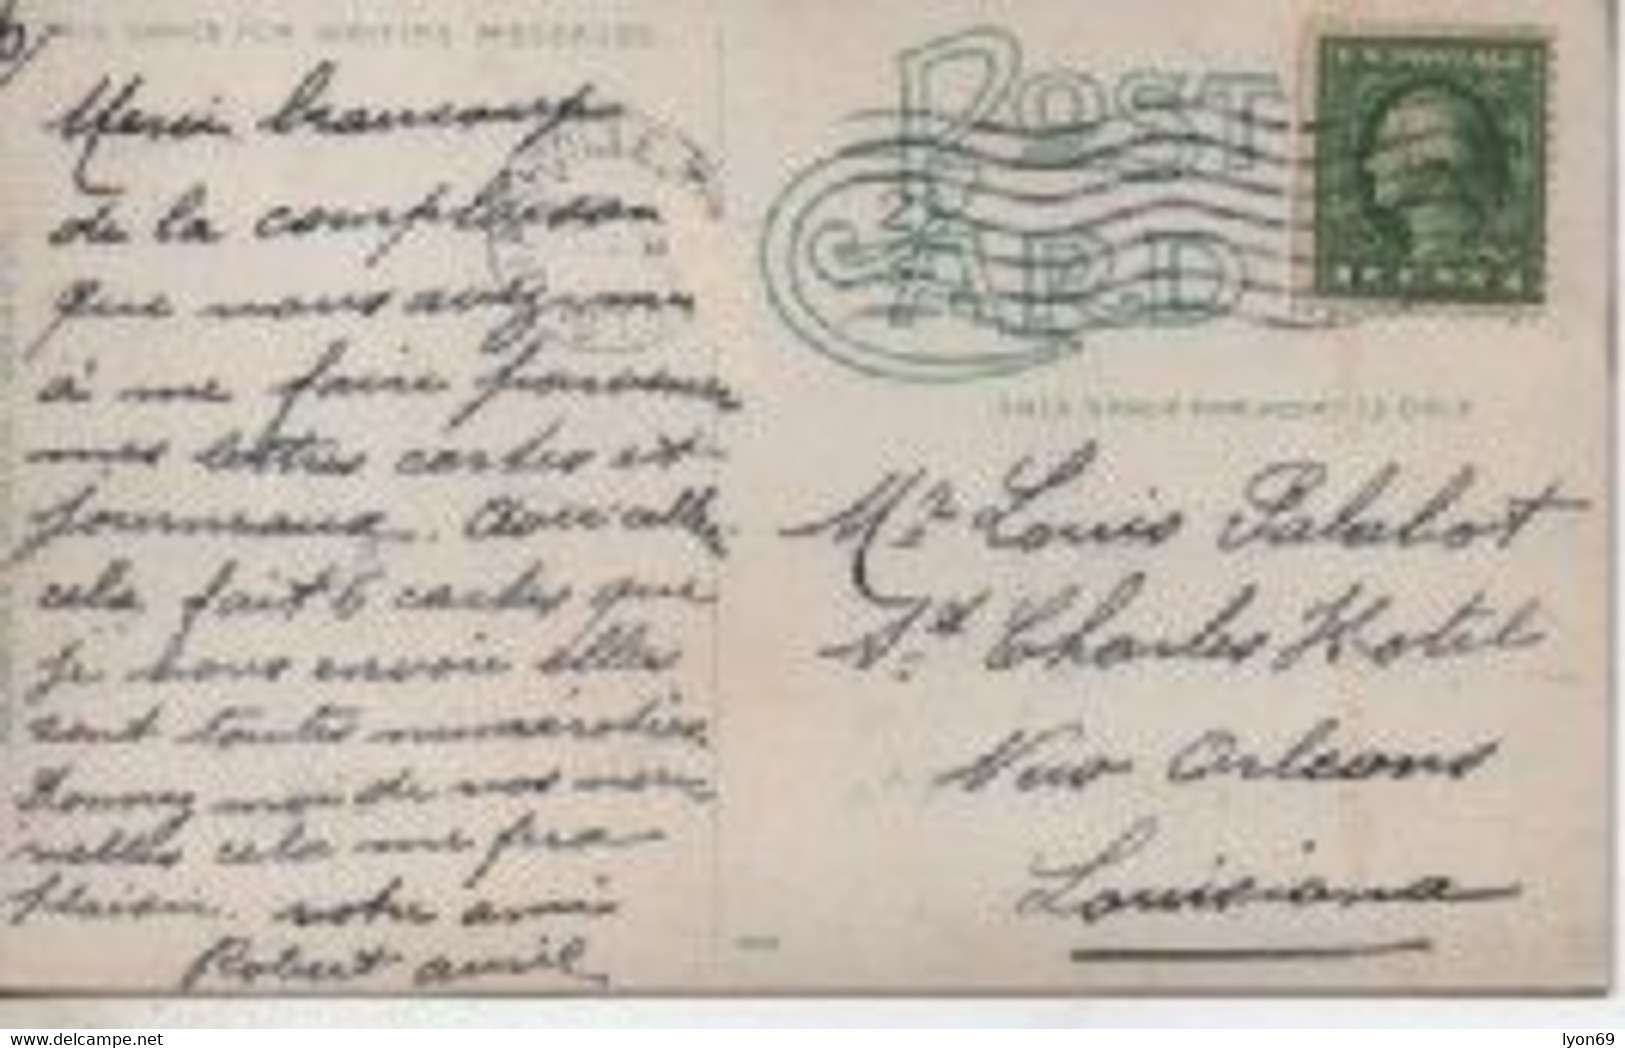 THIS SPACE FOR WRITING MESSAGES
Merci beaucoup
de la complaisan
que vous avez mi
à me faire parvenir
mes lettres cartes et
journeaux.
cela fait 6 cartes que
je vous envoie elles
sont toutes numerotées
Donnez moi de vos nou
velles cela me fera
plaisir. votre ami
Robert
POST CARD
THIS SPACE FOR ADDRESS ONLY
Mr Louis Palabot
St Charles Hotel
New Orleans
Louisiana
lyon69